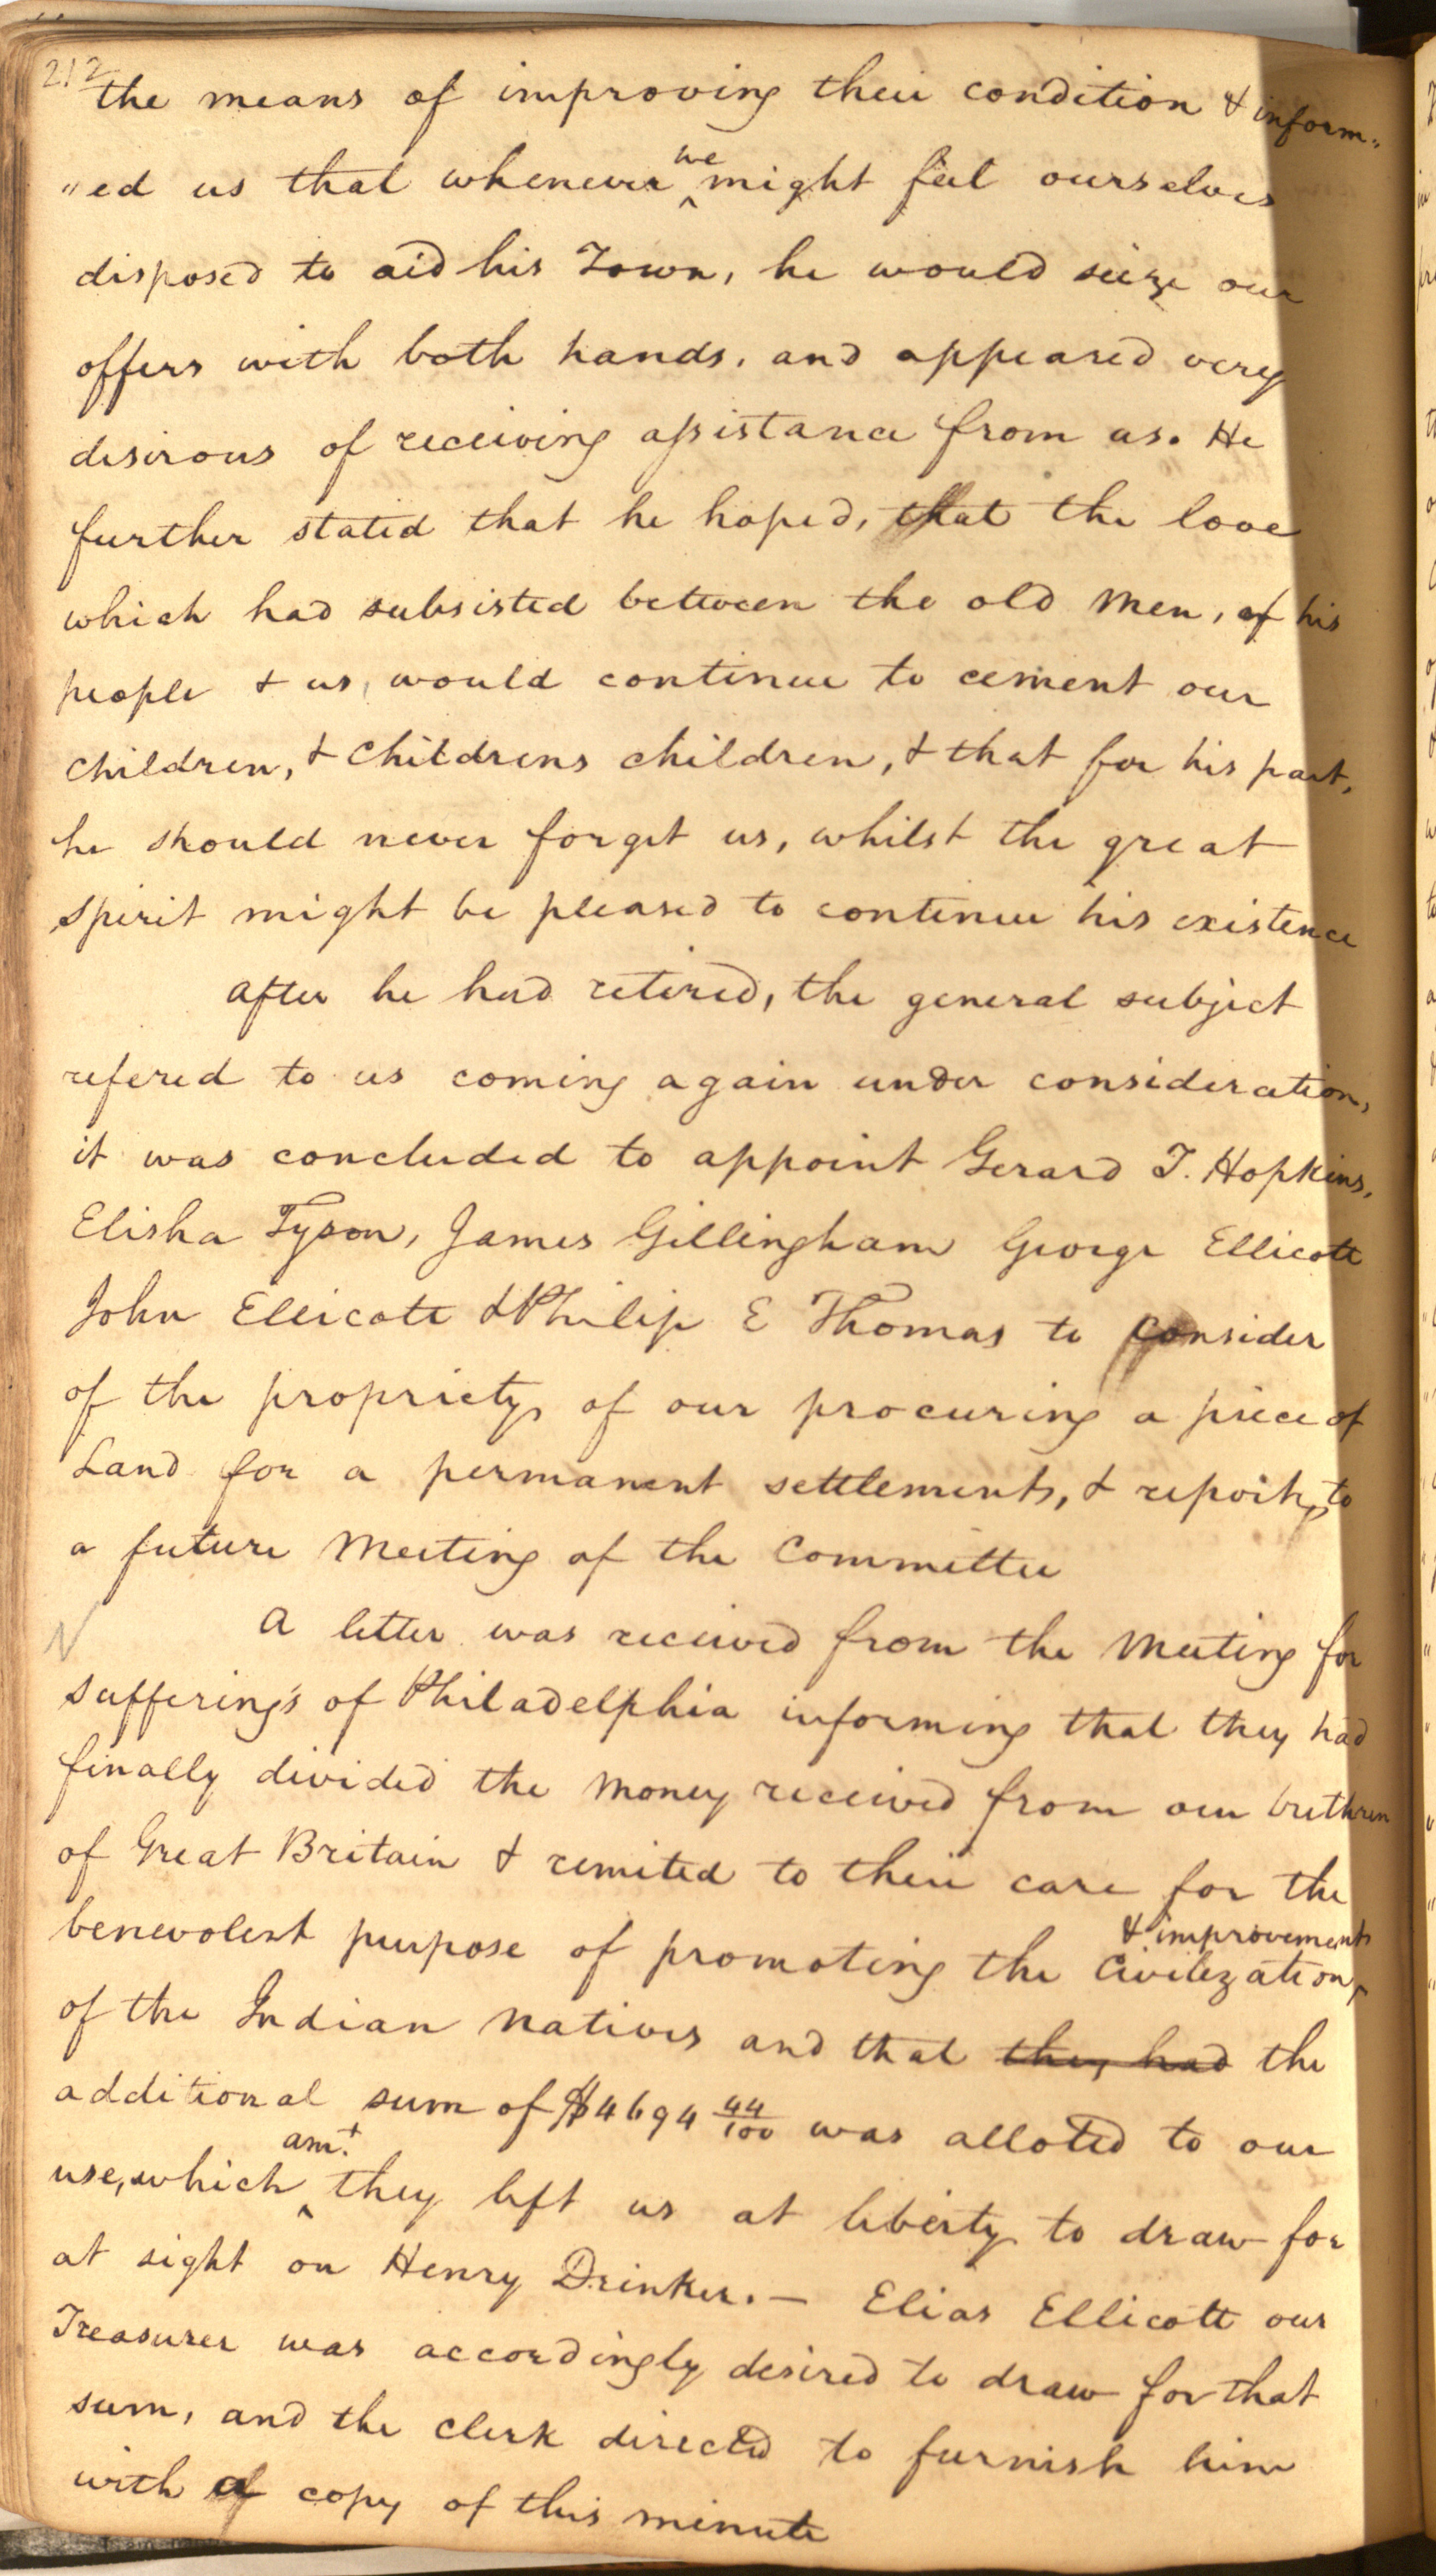 212
the means of improving their condition & inform„
„ed us that whenever ^we might feel ourselves
disposed to aid his Town, he would seize our
offers with both hands, and appeared very
desirous of receiving assistance from us. He
further stated that he hoped, that the love
which had subsisted between the old Men, of his
people & us, would continue to cement our
Children, & Childrens children, & that for his part,
he should never forget us, whilst the great
spirit might be pleased to continue his existence
After he had retired, the general subject
refered to us coming again under consideration,
it was concluded to appoint Gerard T. Hopkins,
Elisha Tyson, James Gillingham George Ellicott
John Ellicott & Philip E Thomas to consider
of the propriety of our procuring a piece of
Land for a permanent settlement, & report, to
a future Meeting of the Committee
A letter was received from the Meeting for
Sufferings of Philadelphia informing that they had
finally divided the Money received from our brethren
of Great Britain & remited to their care for the
benevolent purpose of promoting the Civilization ^& improvement
of the Indian Natives and that ~~they had~~ the
additional sum of $4694 44/100 was alloted to our
use, which ^amt. they left us at liberty to draw for
at sight on Henry Drinker. — Elias Ellicott our
Treasurer was accordingly desired to draw for that
sum, and the Clerk directed to furnish him
with a copy of this minute